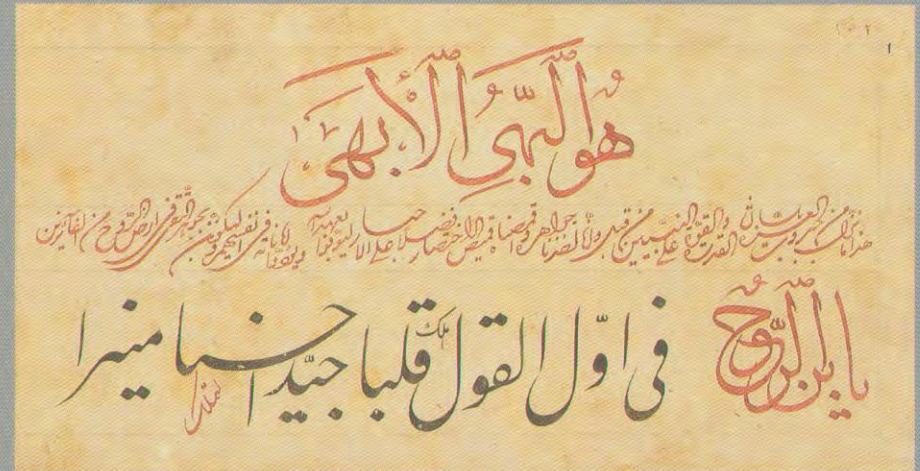 ٢
١
هُوَ الْبَهِّىُ الْأَبْهَى
هذا ما نزل من جبروت العزة بلسان القدرة والقوة على النبيين من قبل وانا اخذنا جواهره واقمصناه قميص الاختصار فضلا على الاحبار ليوفوا بعهد الله ويؤدوا اماناته فى انفسهم وليكونن بجوهر التقى فى ارض الروح من الفائزين
يا ابن الرّوح فى اوّل القول املك قلبا جيّدا حسنا منيرا لتملك